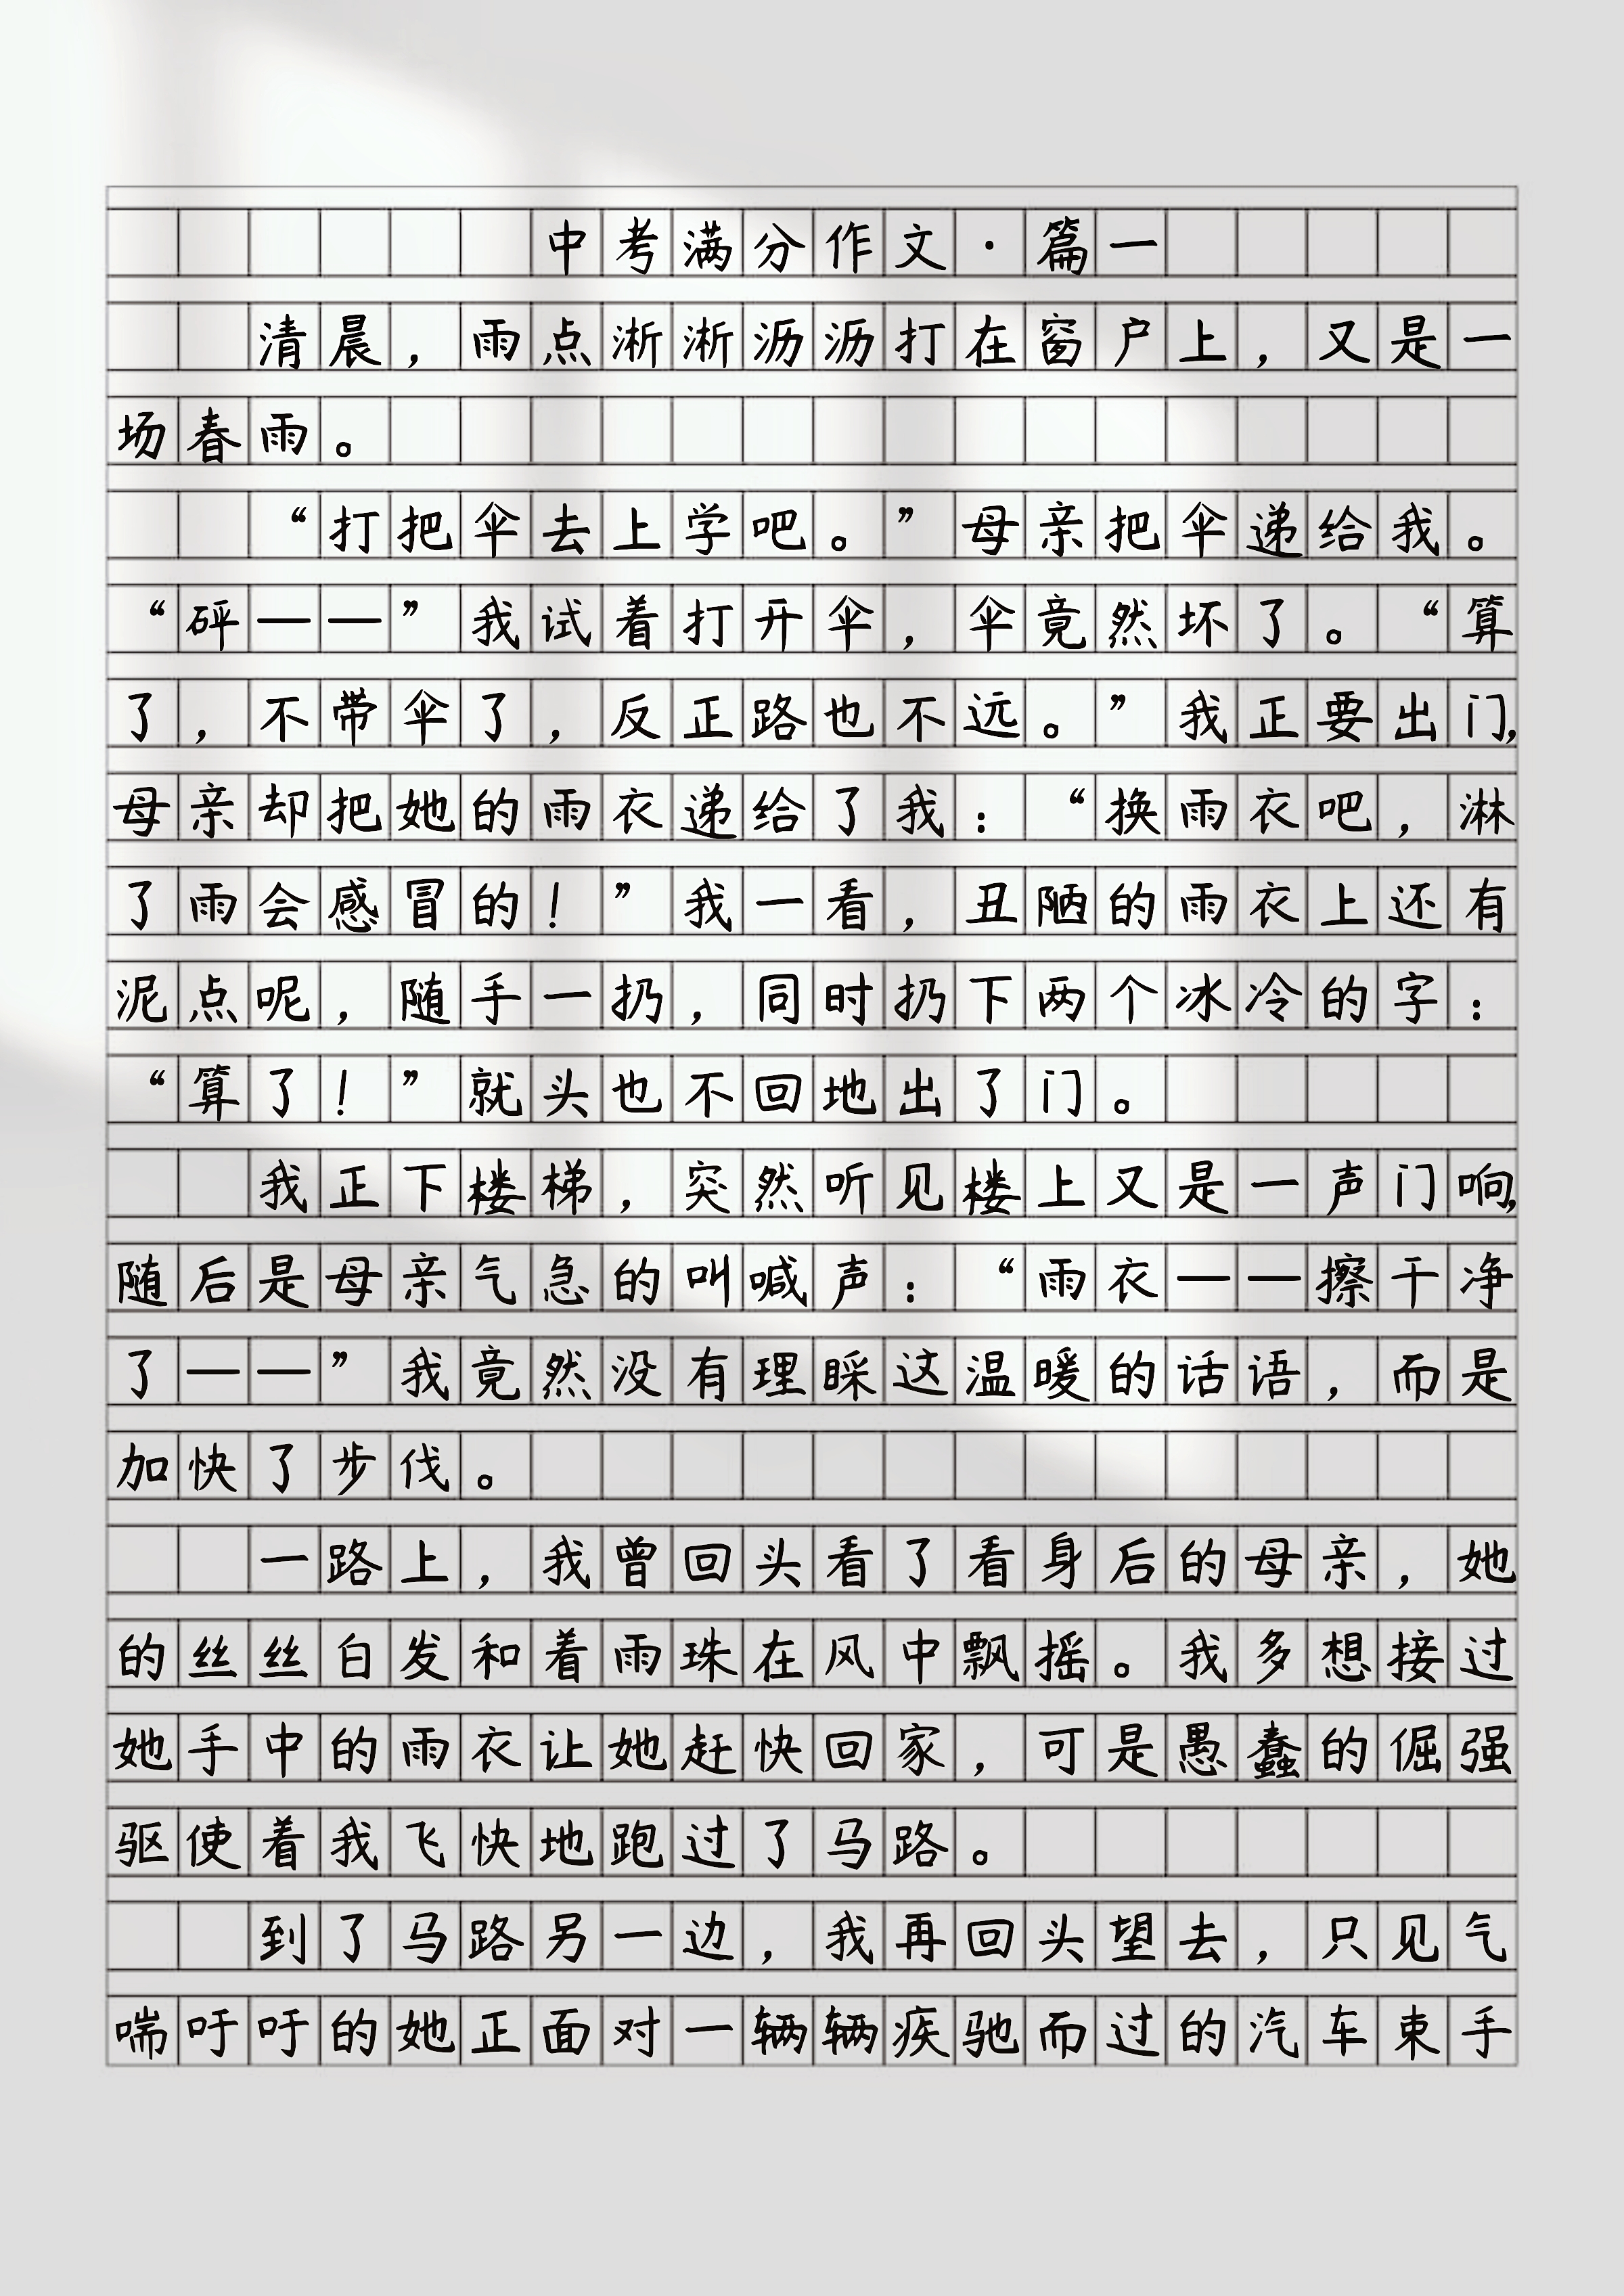 中考满分作文·篇一
清晨，雨点淅淅沥沥打在窗户上，又是一
场春雨。
“打把伞去上学吧。”母亲把伞递给我。
“砰——”我试着打开伞，伞竟然坏了。“算
了，不带伞了，反正路也不远。”我正要出门，
母亲却把她的雨衣递给了我：“换雨衣吧，淋
了雨会感冒的！”我一看，丑陋的雨衣上还有
泥点呢，随手一扔，同时扔下两个冰冷的字：
“算了！”就头也不回地出了门。
我正下楼梯，突然听见楼上又是一声门响，
随后是母亲气急的叫喊声：“雨衣——擦干净
了——”我竟然没有理睬这温暖的话语，而是
加快了步伐。
一路上，我曾回头看了看身后的母亲，她
的丝丝白发和着雨珠在风中飘摇。我多想接过
她手中的雨衣让她赶快回家，可是愚蠢的倔强
驱使着我飞快地跑过了马路。
到了马路另一边，我再回头望去，只见气
喘吁吁的她正面对一辆辆疾驰而过的汽车束手